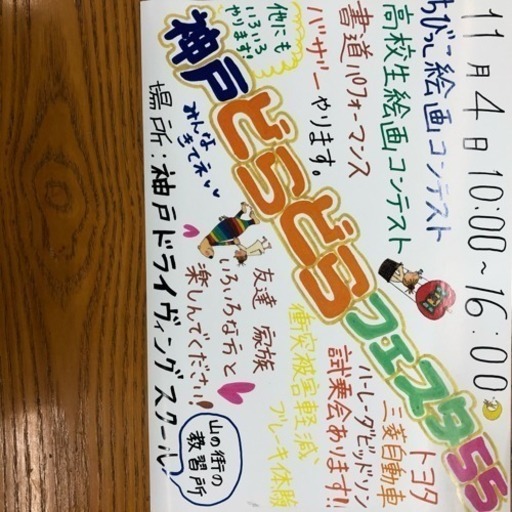 11月4日 10:00~16:00
ちびっこ絵画コンテスト
高校生絵画コンテスト
書道パフォーマンス
バザーやります。
他にも
いろいろ
やります!
神戸どらどらフェスタ55
みんな
きてネ
トヨタ
三菱自動車
ハーレーダビッドソン
試乗会あります!!
衝突被害軽減、
ブレーキ体験
友達 家族
いろいろな方と
楽しんでください!
場所:神戸ドライヴィングスクール
山の街の
教習所